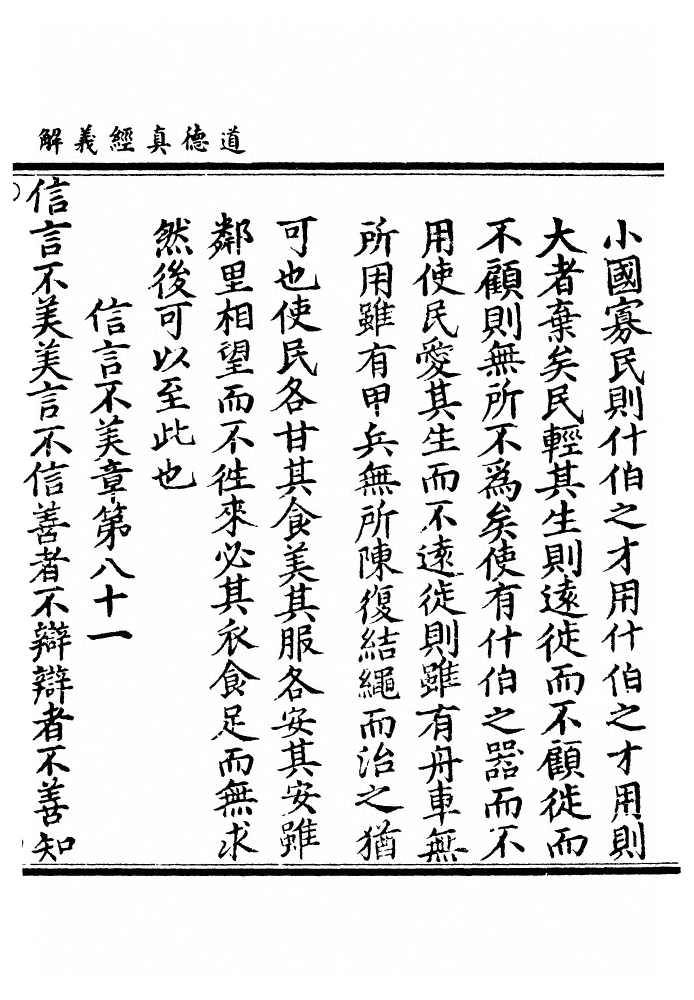 道德真經義解
小國寡民則什伯之才用什伯之才用則
大者棄矣民輕其生則遠徙而不顧徙而
不顧則無所不爲矣使有什伯之器而不
用使民愛其生而不遠徙則雖有舟車無
所用雖有甲兵無所陳復結繩而治之猶
可也使民各甘其食美其服各安其安雖
鄰里相望而不徃來必其衣食足而無求
然後可以至此也
信言不美章第八十一
信言不美美言不信善者不辯辯者不善知